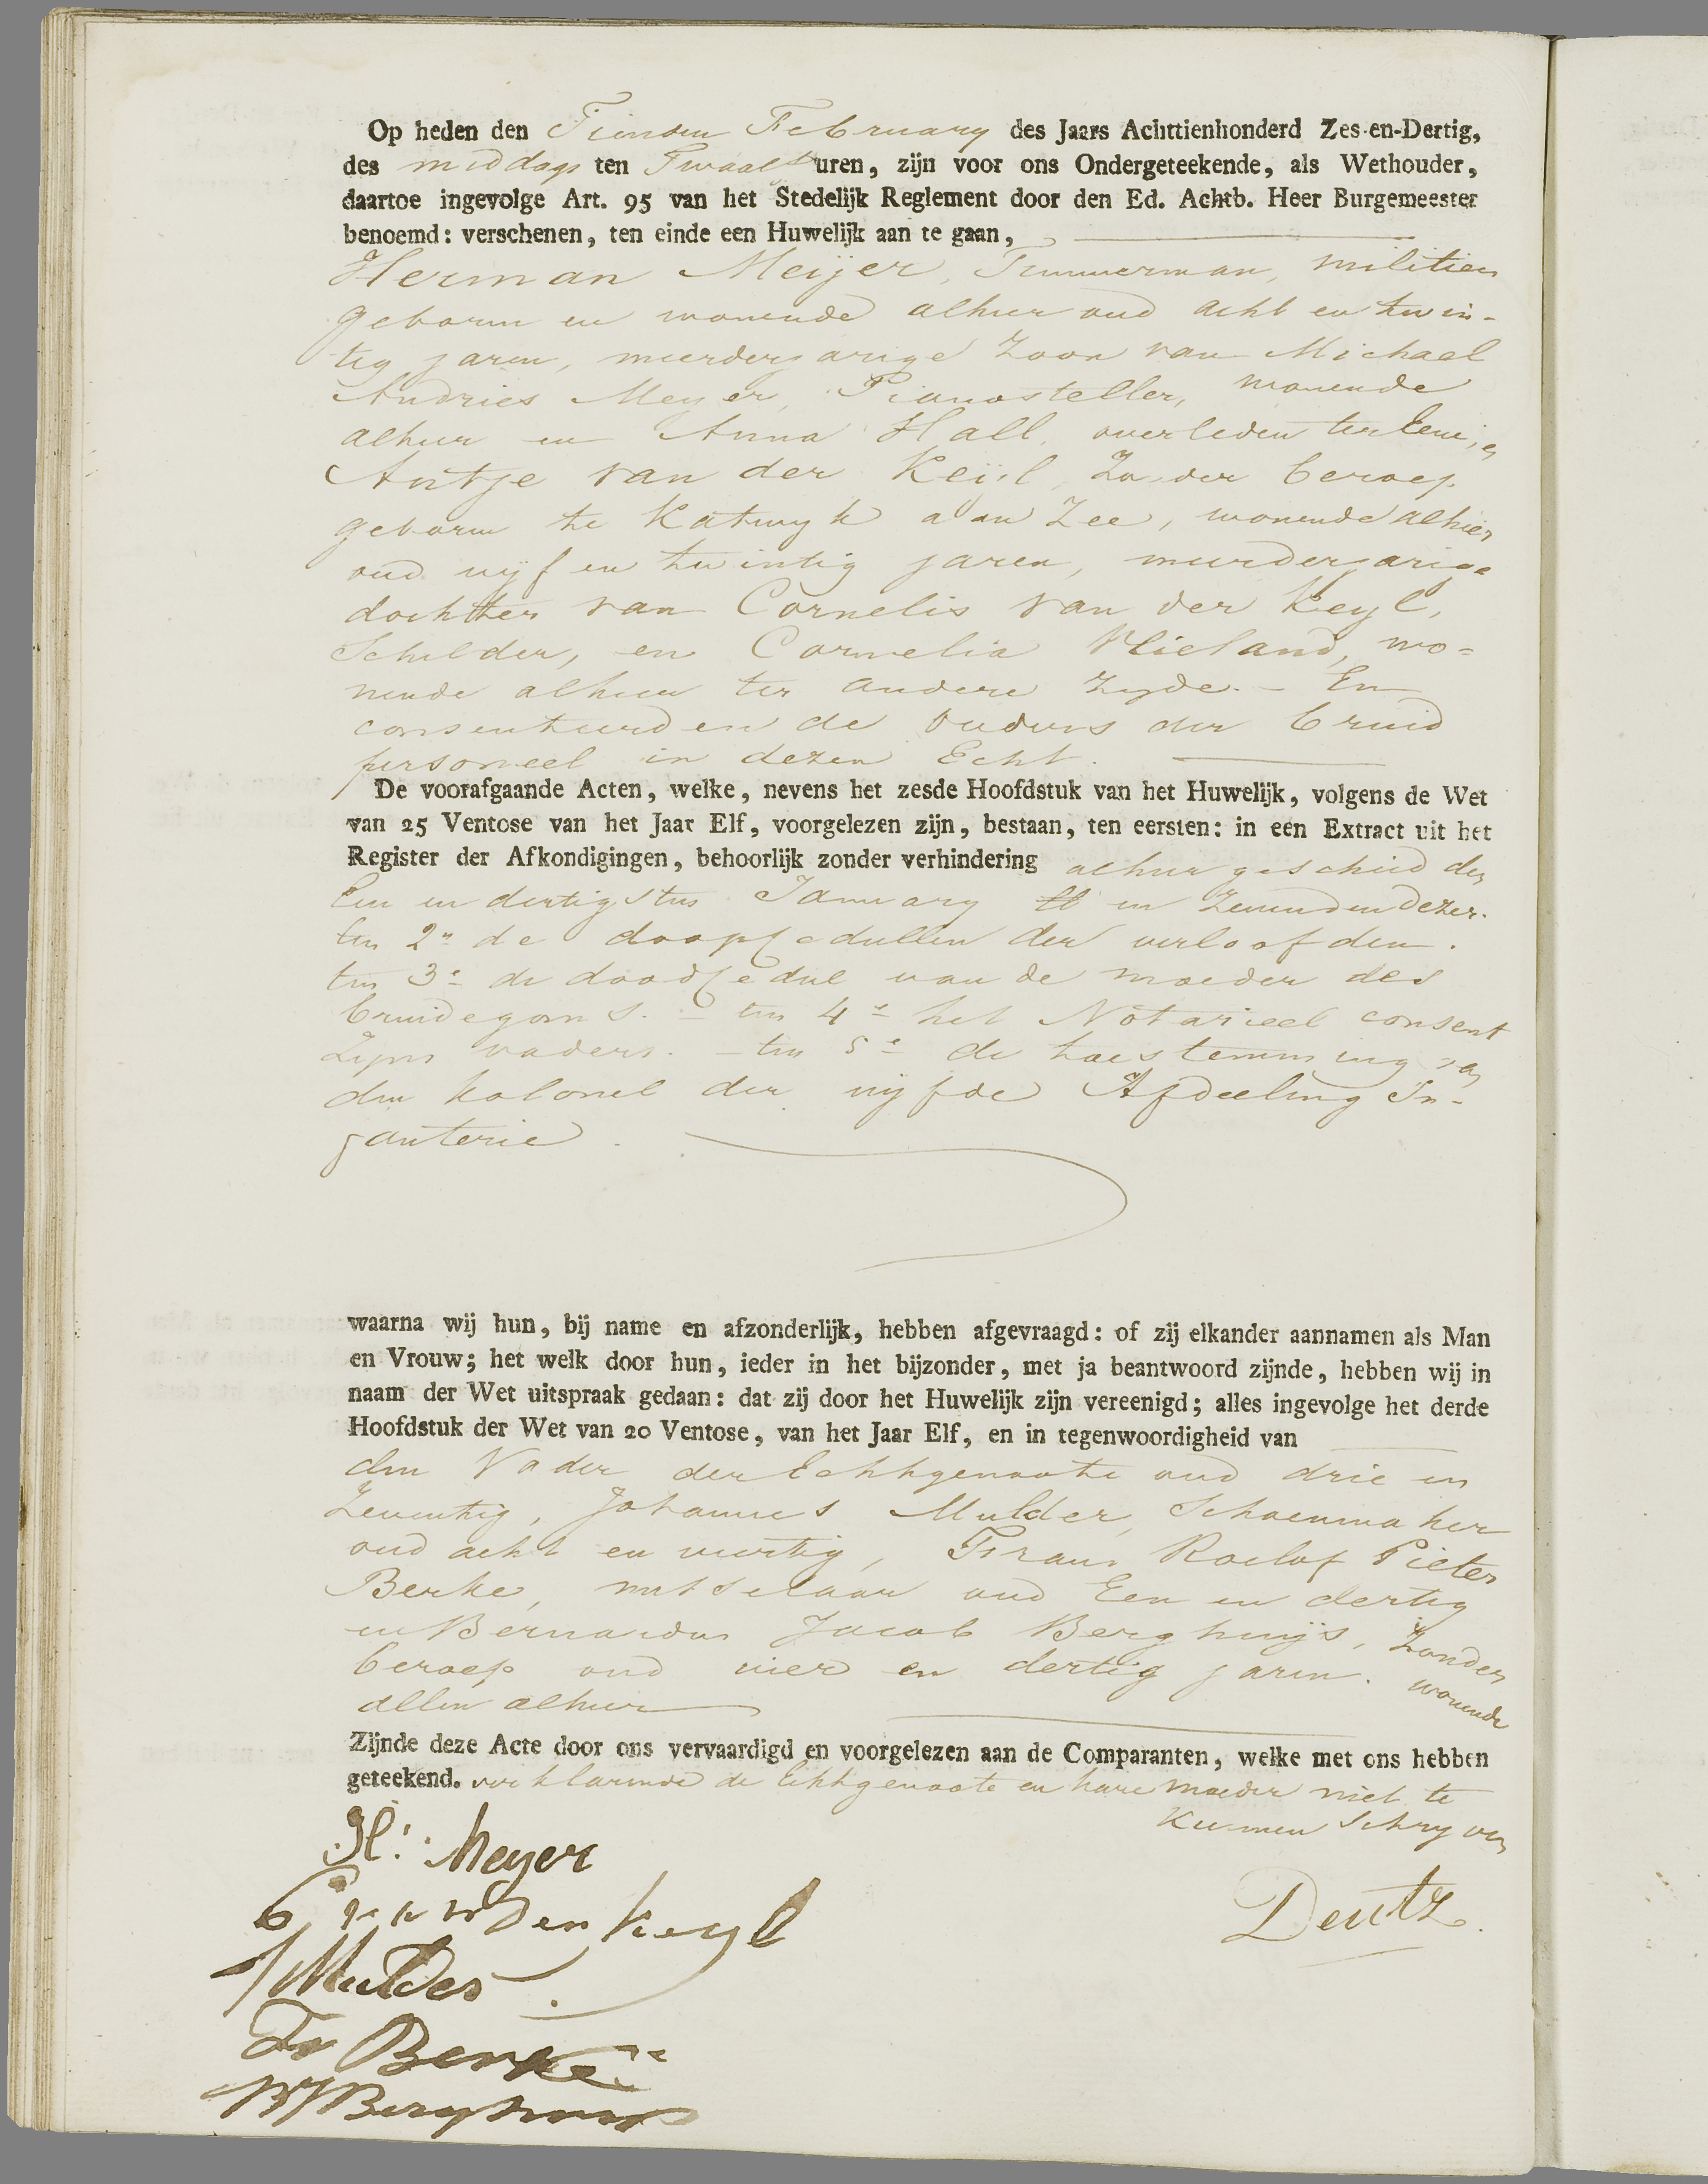 Op heden den Tienden February des Jaars Achttienhonderd Zes-en-Dertig,
des middags ten Twaalf uren, zijn voor ons Ondergeteekende, als Wethouder,
daartoe ingevolge Art. 95 van het Stedelijk Reglement door den Ed. Achtb. Heer Burgemeester
benoemd: verschenen, ten einde een Huwelijk aan te gaan,
Herman Meijer, Timmerman, militien
geboren en wonende alhier oud acht en twin-
tig jaren, meerderjarige Zoon van Michael
Andries Meyer, Pianosteller, wonende
alhier en Anna Hall, overleden ter Eene, en
Antje van der Keijl, Zonder beroep
geboren te Katwyk aan Zee, wonende alhier
oud vyf en twintig jaren, meerderjarige
dochter van Cornelis van der Keyl,
Schilder, en Cornelia Vlieland, wo-
nende alhier ter andere zyde. - En
consenteerden de ouders der bruid
personeel in dezen Echt.
De voorafgaande Acten, welke, nevens het zesde Hoofdstuk van het Huwelijk, volgens de Wet
van 25 Ventose van het Jaar Elf, voorgelezen zijn, bestaan, ten eersten: in een Extract uit het
Register der Afkondigingen, behoorlijk zonder verhindering alhier geschied den
Een en dertigsten January en Zevenden dezer.
ten 2e de doopcedullen der verloofden.
ten 3e de doodcedul van de moeder des
bruidegoms. - ten 4e het Notarieel consent
Zyns vaders. - ten 5e de toestemming van
den Kolonel der vyfde Afdeeling In-
fanterie.
waarna wij hun, bij name en afzonderlijk, hebben afgevraagd: of zij elkander aannamen als Man
en Vrouw; het welk door hun, ieder in het bijzonder, met ja beantwoord zijnde, hebben wij in
naam der Wet uitspraak gedaan: dat zij door het Huwelijk zijn vereenigd; alles ingevolge het derde
Hoofdstuk der Wet van 20 Ventose, van het Jaar Elf, en in tegenwoordigheid van
den Vader der Echtgenoote oud drie en
Zeventig, Johannes Mulder, Schoenmaker
oud acht en veertig, Frans Roelof Pieter
Berke, metselaar oud Een en dertig
en Bernardus Jacob Berghuijs, Zonder
beroep oud vier en dertig jaren. wonende
allen alhier
Zijnde deze Acte door ons vervaardigd en voorgelezen aan de Comparanten, welke met ons hebben
geteekend. verklarende de Echtgenoote en hare Moeder niet te
Kunnen Schryven
H: Meyer
C van der Keyl
Deutz.
J Mulder
Fr Berke
BJ Berghuijs